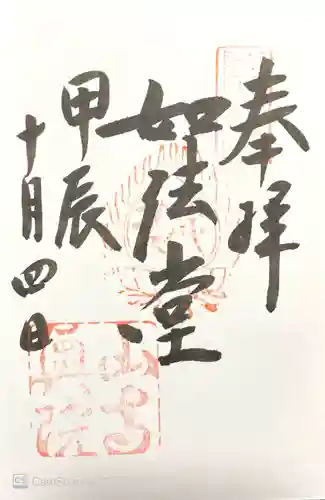 奉拝
如法堂
甲辰
十月四日
CamScanner